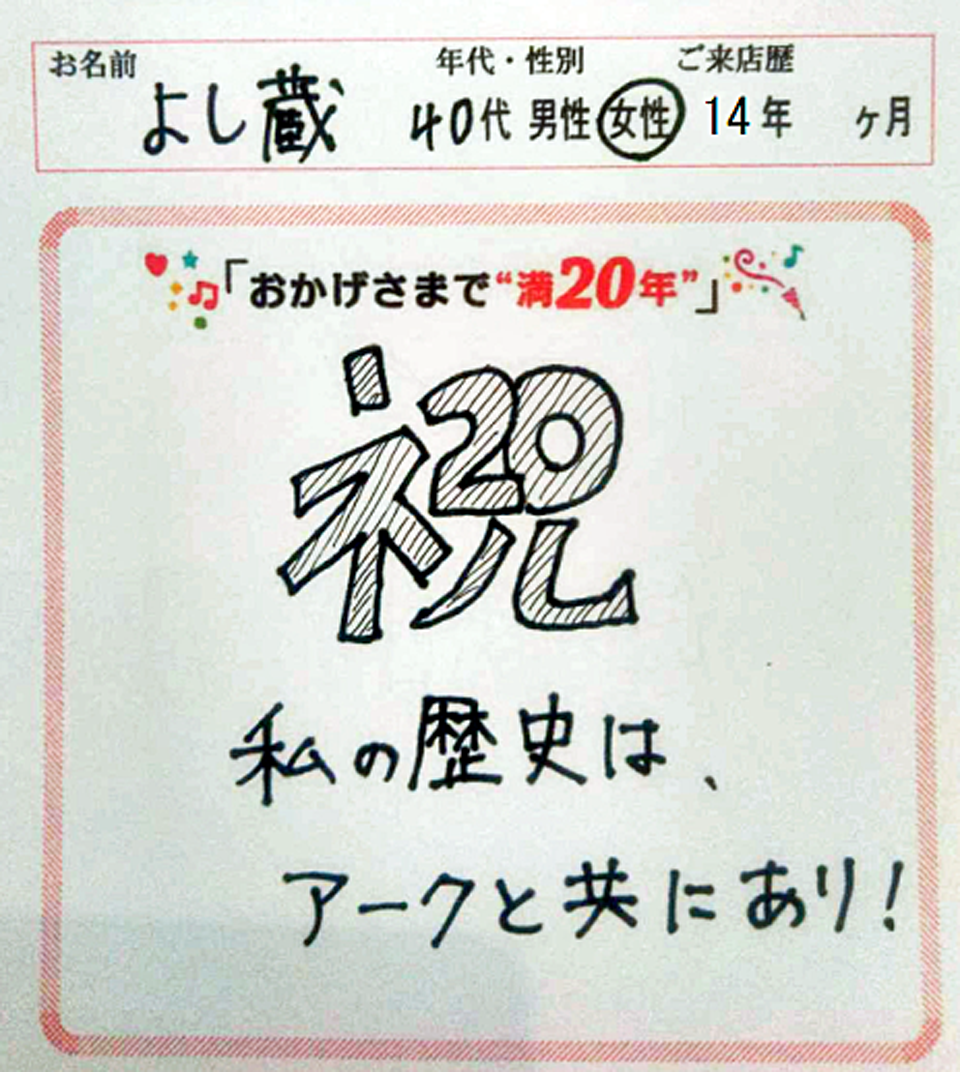 お名前 年代・性別 ご来店歴
よし蔵 40代 男性 女性 14年 ヶ月
「おかげさまで“満20年”」
祝20
私の歴史は、
アークと共にあり!